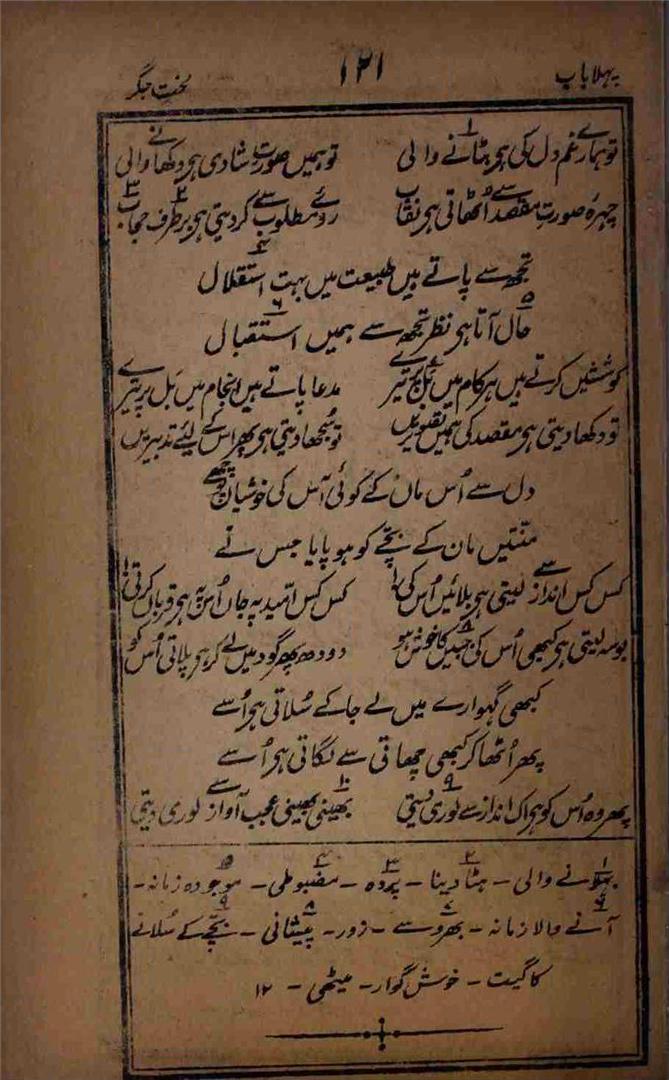 پہلا باب
۱۲۱
لخت جگر
تو ہمارے غم دل کی ہو ہٹانے والی تو ہمیں صورت شادی ہو دکھانے والی
چہرۂ صورتِ مقصد سے اُٹھاتی ہو نقاب روئے مطلوب سے کر دیتی ہو برطرف حجاب
تجھ سے پاتے ہیں طبیعت میں بہت استقلال
حال آتا ہو نظر تجھ سے ہمیں استقبال
کوششیں کرتے ہیں ہر کام میں بل پر تیرے مدعا پاتے ہیں انجام میں بل پر تیرے
تو دکھا دیتی ہو مقصد کی ہمیں تصویریں تو سُجھا دیتی ہو پھر اس کے لئے تدبیریں
دل سے اُس ماں کے کوئی آس کی خوشیاں پوچھے
منتیں مان کے بچے کو ہو پایا جس نے
کس کس انداز سے لیتی ہو بلائیں اُس کی کس کس امید پہ جاں اُس پہ ہو قرباں کرتی
بوسہ لیتی ہو کبھی اُس کی جبیں کا خوش ہو دودھ پھر گود میں لے کر ہو پلاتی اُس کو
کبھی گہوارے میں لے جا کے سُلاتی ہو اُسے
پھر اُٹھا کر کبھی چھاتی سے لگاتی ہو اُسے
پھر وہ اُس کو ہو اک انداز سے لوری دیتی بھینی بھینی عجب آواز سے لوری دیتی
۱ نے والی ـ ۲ ہٹا دینا ـ ۳ پردہ ـ ۴ مضبوطی ـ ۵ موجودہ زمانہ ـ
۶ آنے والا زمانہ ـ ۷ بھروسے ـ زور ـ ۸ پیشانی ـ ۹ بچے کے سُلانے
کا گیت ـ خوش گوار ـ میٹھی ـ ۱۲